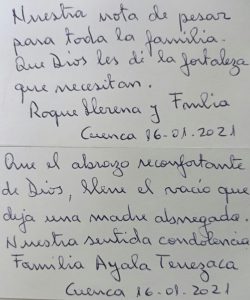 Nuestra nota de pesar
para toda la familia.
Que Dios les dí la fortaleza
que necesitan.
Roque Llerena y Fmlia
Cuenca 16-01-2021
Que el abrazo reconfortante
de Dios, llene el vacío que
deja una madre abnegada.
Nuestra sentida condolencia
Familia Ayala Tenezaca
Cuenca 16-01-2021